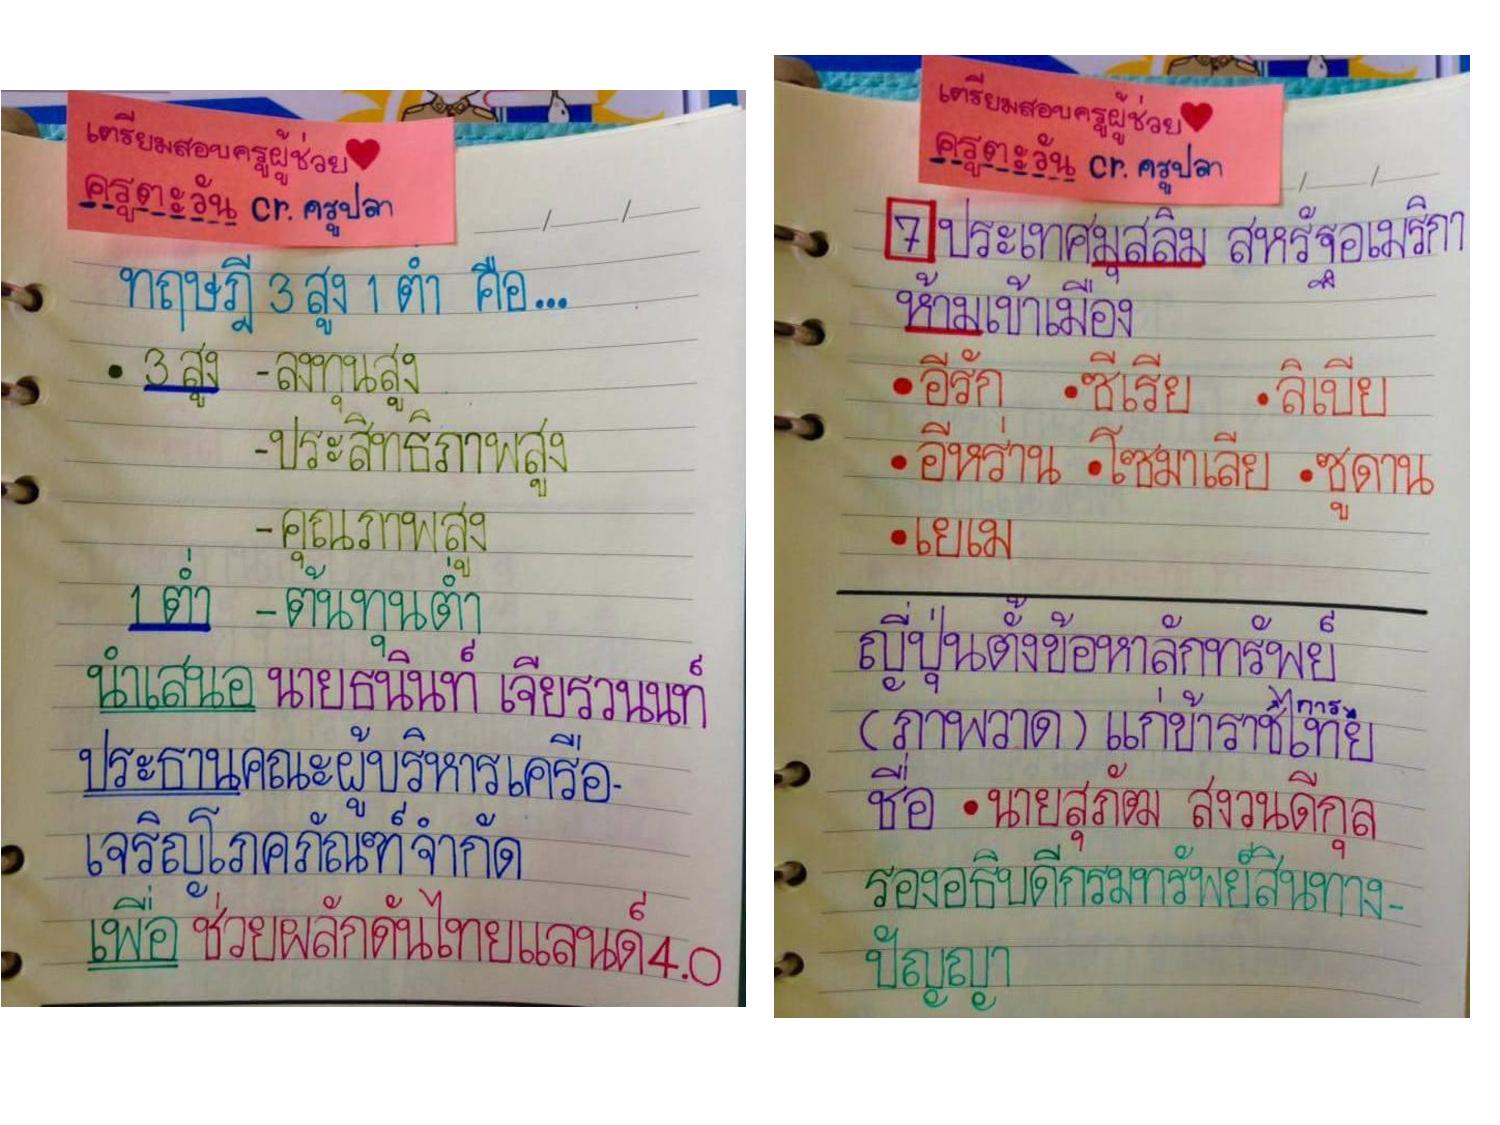 เตรียมสอบครูผู้ช่วย
ครูตะวัน cr. ครูปลา
ทฤษฎี 3 สูง 1 ต่ำ คือ...
• 3 สูง -ลงทุนสูง
-ประสิทธิภาพสูง
-คุณภาพสูง
1 ต่ำ -ต้นทุนต่ำ
นำเสนอ นายธนินท์ เจียรวนนท์
ประธานคณะผู้บริหารเครือ-
เจริญโภคภัณฑ์จำกัด
เพื่อ ช่วยผลักดันไทยแลนด์4.0
เตรียมสอบครูผู้ช่วย
ครูตะวัน cr. ครูปลา
7 ประเทศมุสลิม สหรัฐอเมริกา
ห้ามเข้าเมือง
•อีรัก •ซีเรีย •ลิเบีย
•อีหร่าน •โซมาเลีย •ซูดาน
•เยเม
ญี่ปุ่นตั้งข้อหาลักทรัพย์
(ภาพวาด) แก่ข้าราชการไทย
ชื่อ •นายสุภัฒ สงวนดีกุล
รองอธิบดีกรมทรัพย์สินทาง-
ปัญญา